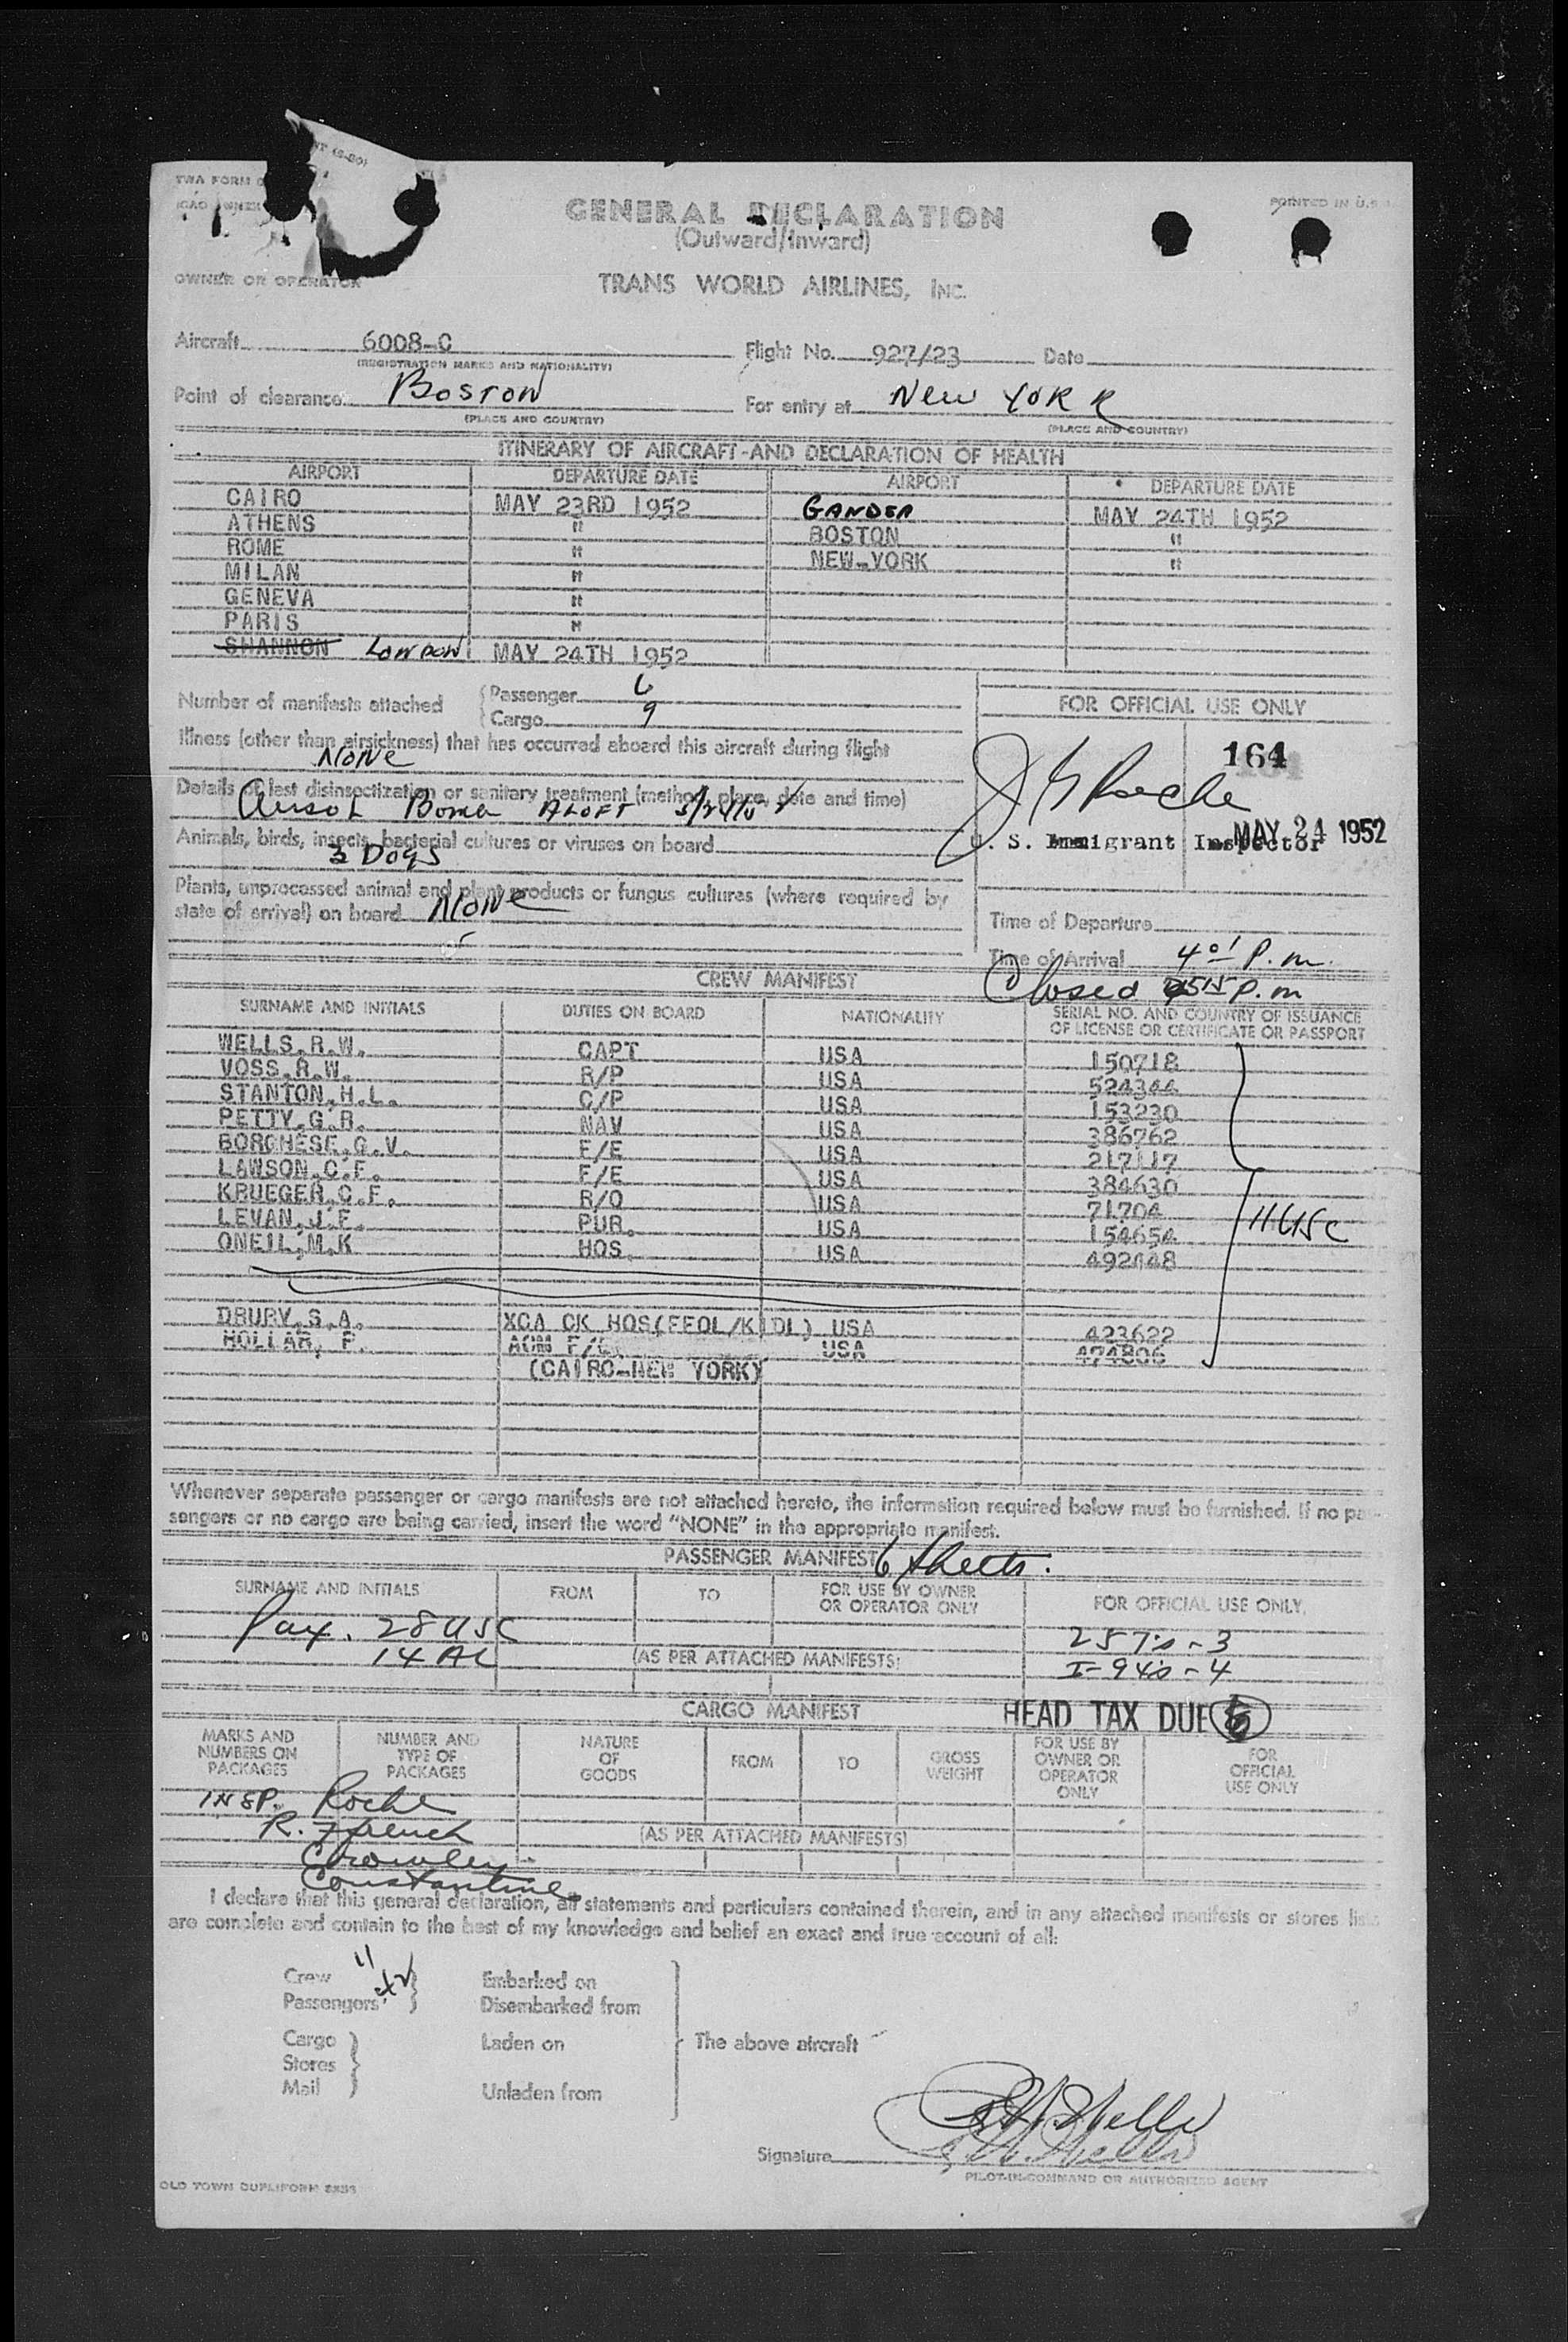 TWA FORM
GENERAL DECLARATION
PRINTED IN U.S.
(Outward/Inward)
OWNER OR OPERATOR
TRANS WORLD AIRLINES, INC.
Aircraft 6008-C Flight No. 927/23 Date
(REGISTRATION MARKS AND NATIONALITY)
Point of clearance Boston For entry at New York
(PLACE AND COUNTRY) (PLACE AND COUNTRY)
ITINERARY OF AIRCRAFT AND DECLARATION OF HEALTH
AIRPORT DEPARTURE DATE AIRPORT DEPARTURE DATE
CAIRO MAY 23RD 1952 GANDER MAY 24TH 1952
ATHENS " BOSTON "
ROME " NEW YORK "
MILAN "
GENEVA "
PARIS "
SHANNON LONDON MAY 24TH 1952
Number of manifests attached Passenger 6
Cargo 9
FOR OFFICIAL USE ONLY
Illness (other than airsickness) that has occurred aboard this aircraft during flight
None
164
Details of last disinsectization or sanitary treatment (method, place, date and time)
Bomb ALOFT 5/24/52
J G Roche
Animals, birds, insects, bacterial cultures or viruses on board
3 Dogs
U. S. Immigrant Inspector MAY 24 1952
Plants, unprocessed animal and plant products or fungus cultures (where required by
state of arrival) on board None
Time of Departure
Time of Arrival 4 01 P.m.
Closed 515 p.m
CREW MANIFEST
SURNAME AND INITIALS DUTIES ON BOARD NATIONALITY SERIAL NO. AND COUNTRY OF ISSUANCE
OF LICENSE OR CERTIFICATE OR PASSPORT
WELLS,R.W. CAPT USA 150718
VOSS,R.W. R/P USA 524344
STANTON,H.L. C/P USA 153230
PETTY,G.R. NAV USA 386762
BORGHESE,G.V. F/E USA 217117
LAWSON,C.F. F/E USA 384630
KRUEGER,C.F. R/O USA 71704
LEVAN,J.F. PUR. USA 154654
ONEIL,M.K HOS. USA 492448
11 USC
DRURY,S.A. XCA CK HOS(EEOL/KIDL) USA 423622
HOLLAR, P. ACM F/E USA 474806
(CAIRO-NEW YORK)
Whenever separate passenger or cargo manifests are not attached hereto, the information required below must be furnished. If no pas-
sengers or no cargo are being carried, insert the word "NONE" in the appropriate manifest.
PASSENGER MANIFEST 6 sheets.
SURNAME AND INITIALS FROM TO FOR USE BY OWNER
OR OPERATOR ONLY FOR OFFICIAL USE ONLY
Pax. 28 USC 257's - 3
14 AL (AS PER ATTACHED MANIFESTS) I-94's - 4
CARGO MANIFEST HEAD TAX DUE
MARKS AND
NUMBERS ON
PACKAGES
NUMBER AND
TYPE OF
PACKAGES
NATURE
OF
GOODS
FROM TO GROSS
WEIGHT
FOR USE BY
OWNER OR
OPERATOR
ONLY
FOR
OFFICIAL
USE ONLY
INSP. Roche
R. French
(AS PER ATTACHED MANIFESTS)
Crowley
Constantine
I declare that this general declaration, all statements and particulars contained therein, and in any attached manifests or stores lists
are complete and contain to the best of my knowledge and belief an exact and true account of all:
Crew 11 Embarked on
Passengers 42 Disembarked from
Cargo Laden on The above aircraft
Stores
Mail Unladen from
R.W. Wells
Signature R.W. Wells
PILOT-IN-COMMAND OR AUTHORIZED AGENT
OLD TOWN DUPLIFORM